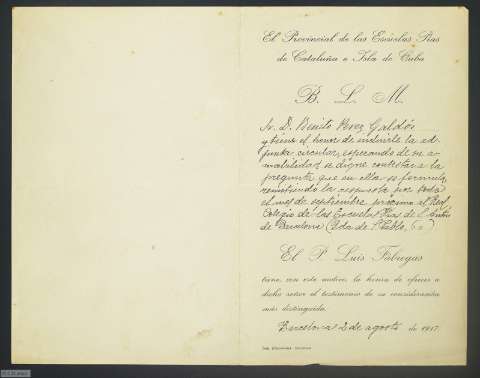 El Provincial de las Escuelas Pías
de Cataluña e Isla de Cuba
B. L. M.
Sr. D. Benito Perez Galdós
y tiene el honor de incluirle la ad-
junta circular, esperando de su a-
mabilidad se digne contestar a la
pregunta que en ella se formula,
remitiendo la respuesta por todo
el mes de septiembre próximo al Rdo.
Colegio de las Escuelas Pías de S. Antón
de Barcelona (Rda de S. Pablo,
El P. Luis Fábregas
tiene, con este motivo, la honra de ofrecer a
dicho señor el testimonio de su consideración
más distinguida.
Barcelona 2 de agosto de 1917